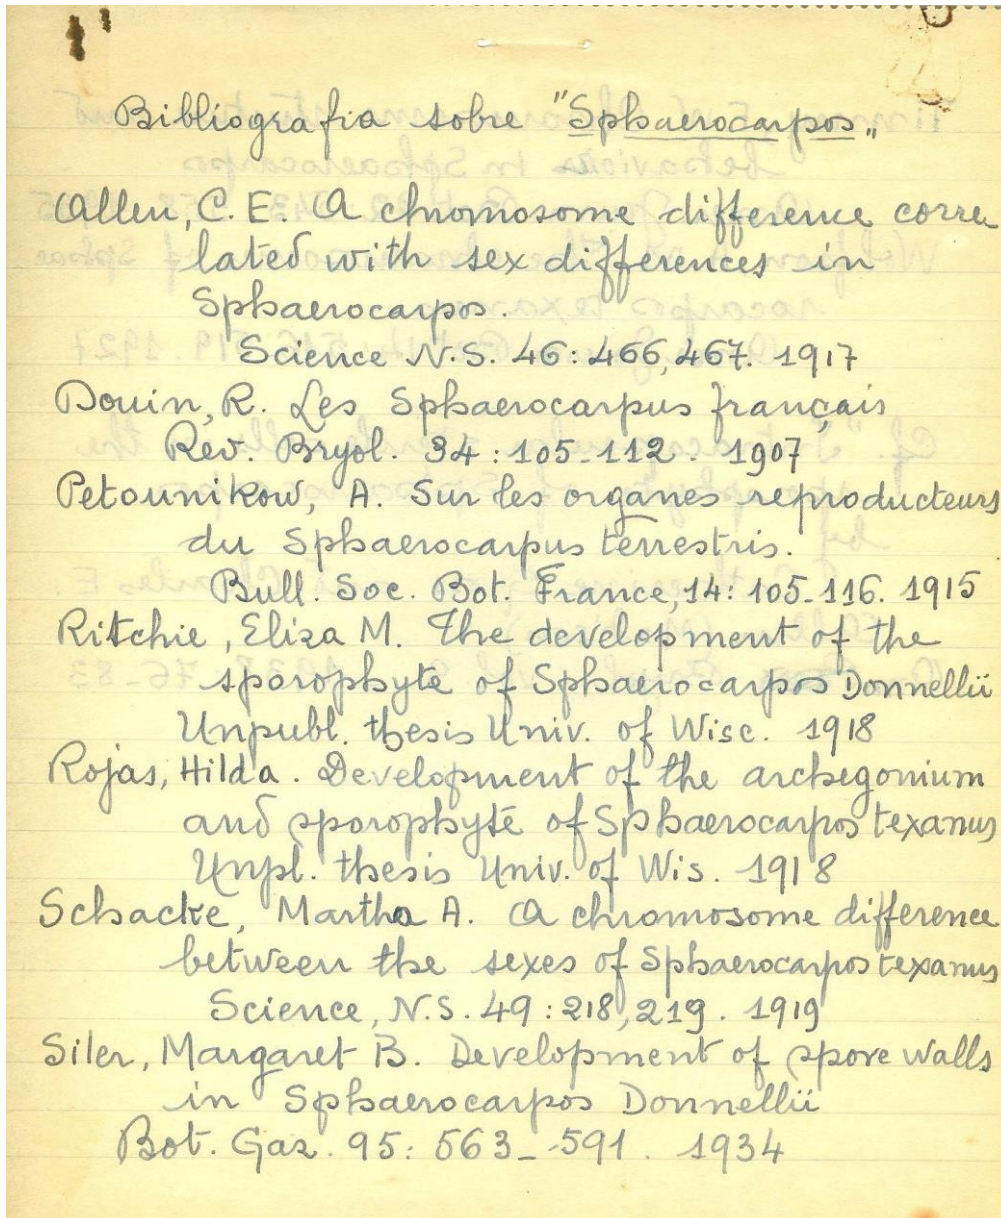 Bibliografia sobre "Sphaerocarpos„
Allen, C. E. A chromosome difference corre
lated with sex differences in
Sphaerocarpos.
Science N.S. 46: 466, 467. 1917
Douin, R. Les Sphaerocarpus français
Rev. Bryol. 34: 105-112. 1907
Petounikow, A. Sur les organes reproducteurs
du Sphaerocarpus terrestris.
Bull. Soc. Bot. France, 14: 105-116. 1915
Ritchie, Eliza M. The development of the
sporophyte of Sphaerocarpos Donnellii
Unpubl. thesis Univ. of Wisc. 1918
Rojas, Hilda. Development of the archegonium
and sporophyte of Sphaerocarpos texanus
Unpl. thesis Univ. of Wis. 1918
Schacke, Martha A. A chromosome difference
between the sexes of Sphaerocarpos texanus
Science, N.S. 49: 218, 219. 1919
Siler, Margaret B. Development of spore walls
in Sphaerocarpos Donnellii
Bot. Gaz. 95: 563-591. 1934